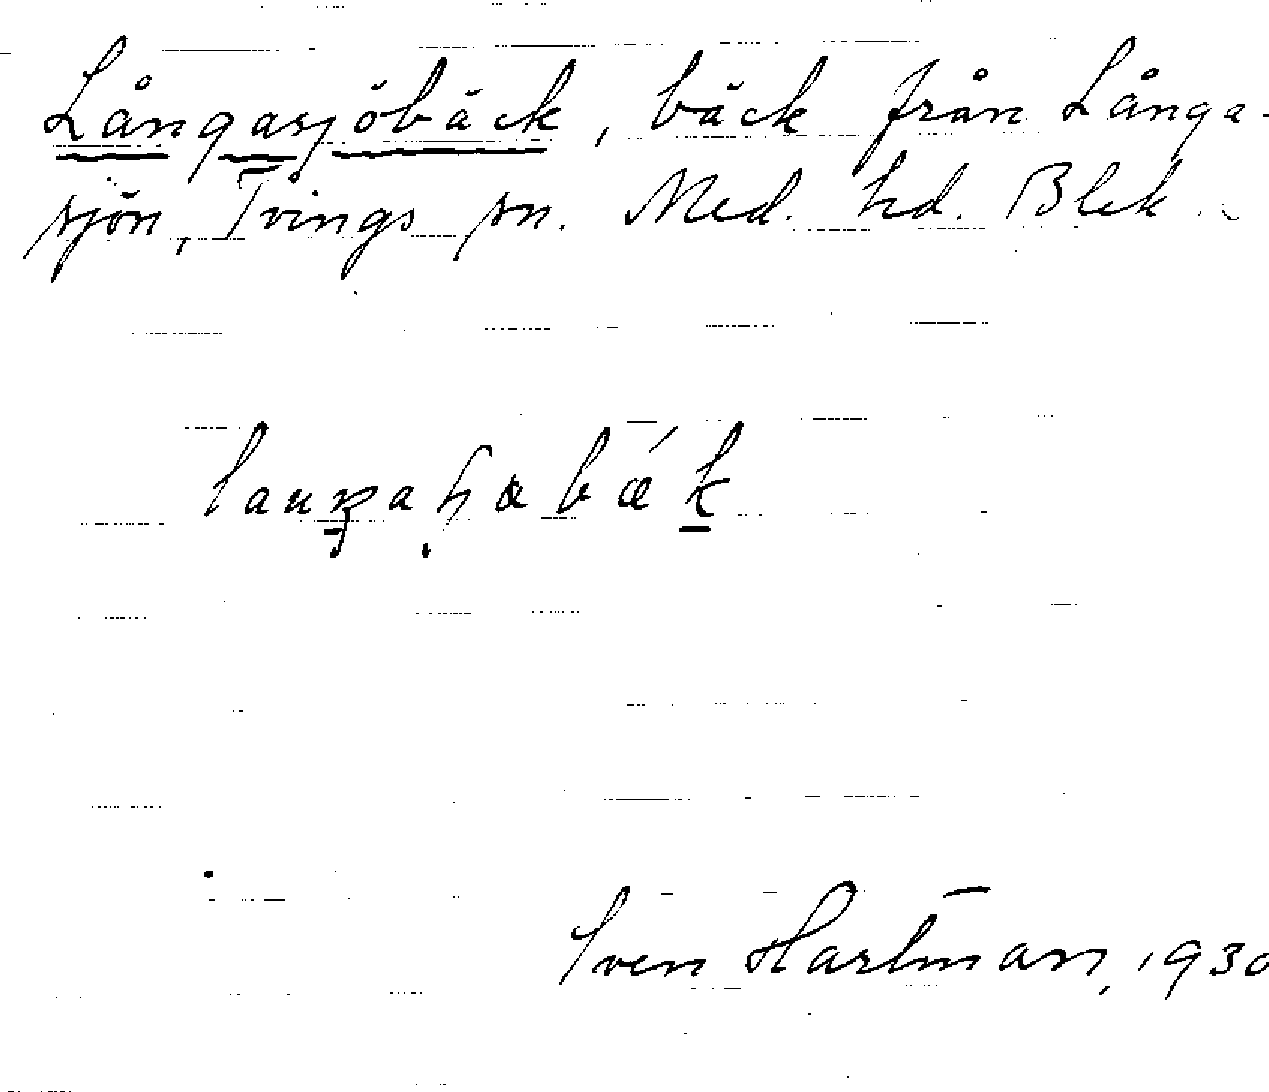 Långasjöbäck, bäck från Långa-
sjön, Tvings sn. Med. hd. Blek.
Sven Hartman, 1930